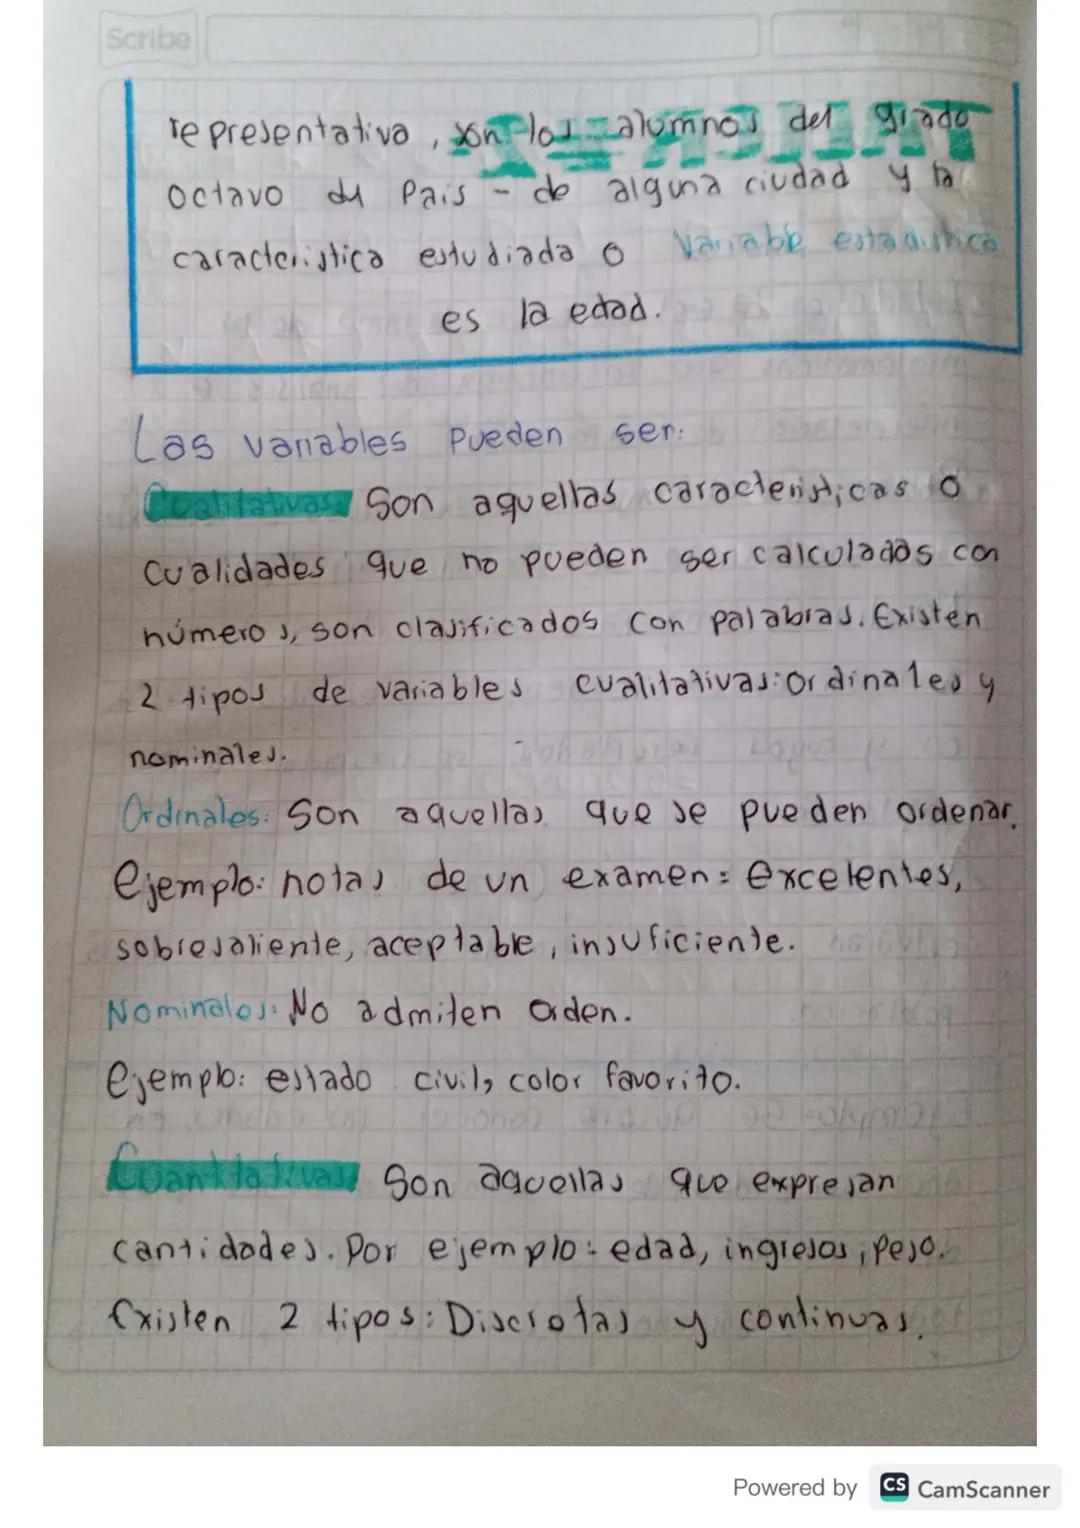 Scribe
representativa, son los alumnos del grado
octavo del Pais - de alguna ciudad y la
caracteristica estudiada o Variable estadistica
es la edad.
Las variables Pueden ser:
Cualitativas Son aquellas caracteristicas o
cualidades que no pueden ser calculados con
números, son clasificados con palabras. Existen
2 tipos de variables cualitativas: Ordinales y
nominales.
Ordinales: Son aquellas que se pueden ordenar.
Ejemplo: notas de un examen: excelentes,
sobresaliente, aceptable, insuficiente.
Nominales: No admiten orden.
Ejemplo: estado civil, color favorito.
Cuantitativas Son aquellas que expresan
cantidades. Por ejemplo: edad, ingresos, peso.
Existen 2 tipos: Discretas y continuas.
Powered by CS CamScanner